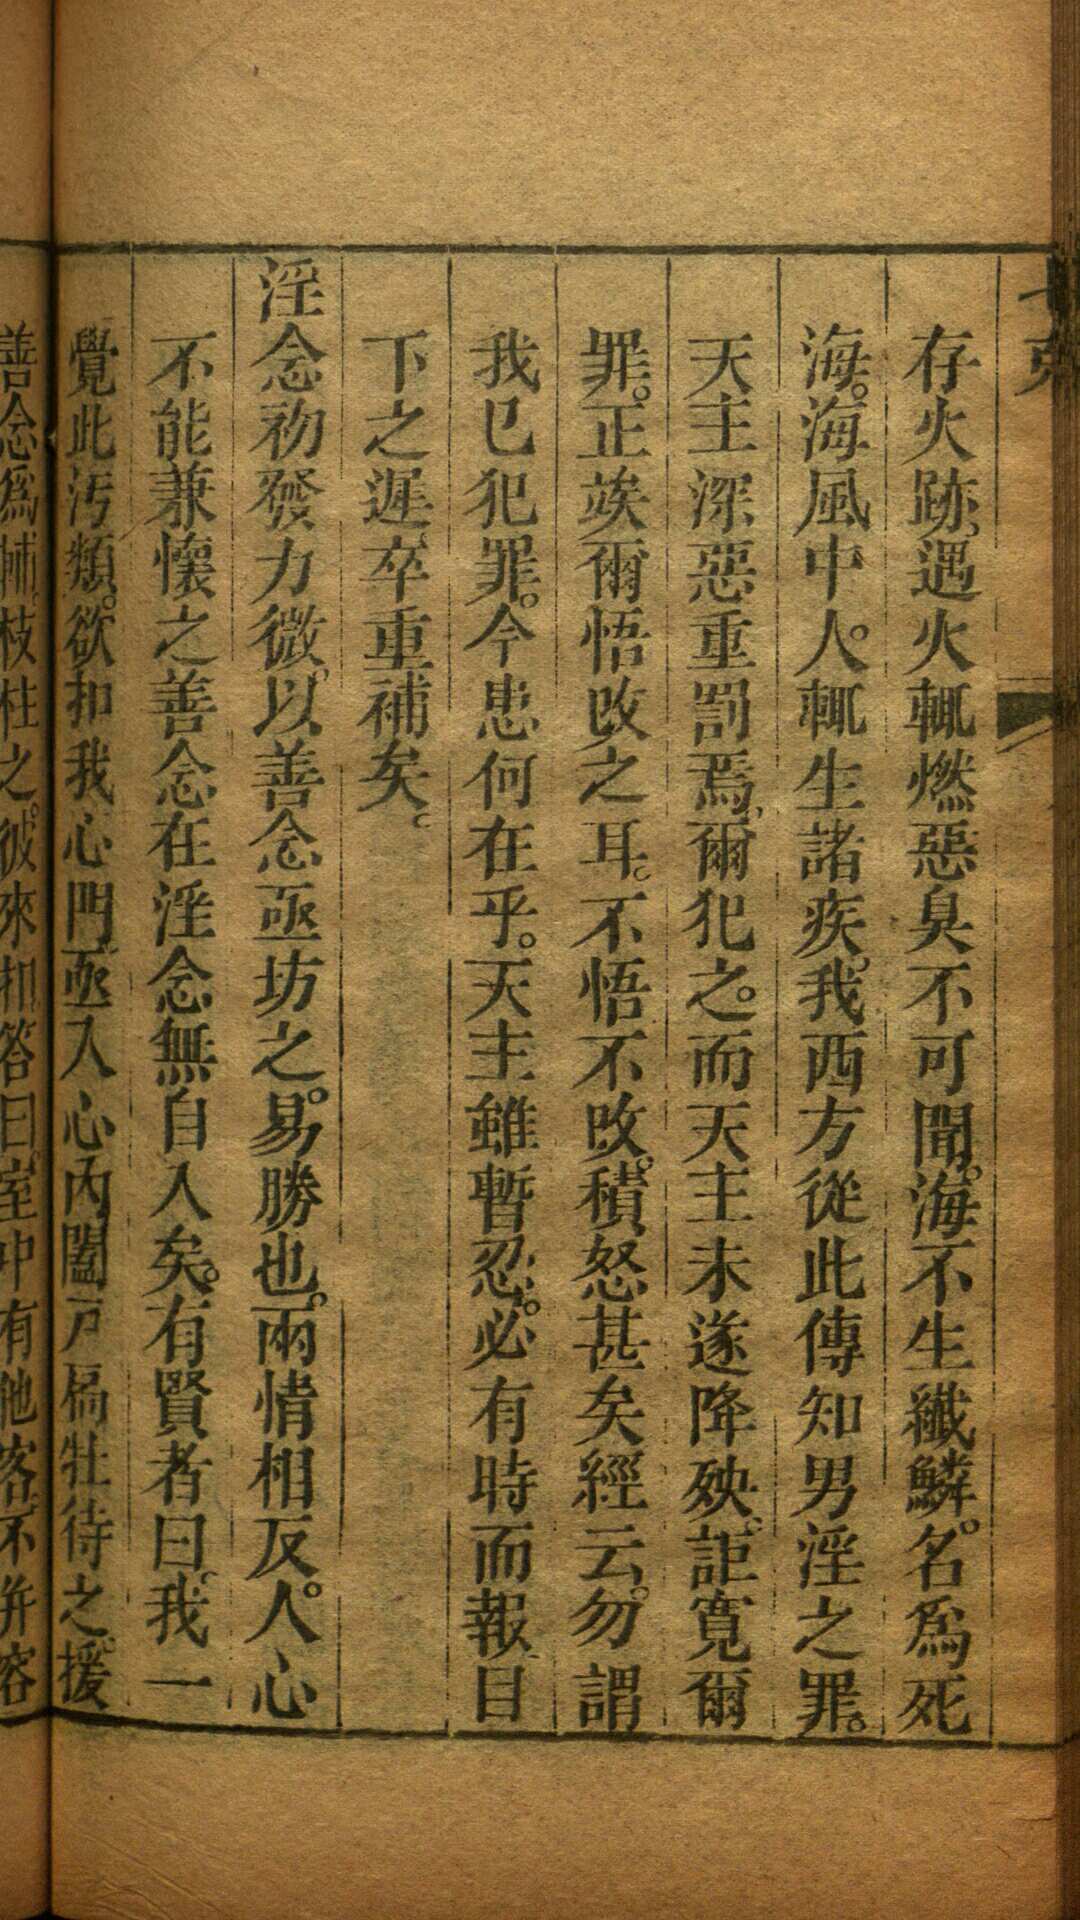 七克
存火跡、遇火輒燃惡臭不可聞。海不生纖鱗。名爲死
海。海風中人。輒生諸疾。我西方從此傳知男淫之罪。
天主深惡重罰焉、爾犯之。而天主未遂降殃。詎寬爾
罪。正竢爾悟改之耳。不悟不改。積怒甚矣經云。勿謂
我已犯罪。今患何在乎。天主雖暫忍。必有時而報。目
下之遲、卒重補矣。
淫念初發力微。以善念亟坊之。易勝也。兩情相反。人心
不能兼懷之善念在淫念無自入矣。有賢者曰。我一
覺此汚類。欲扣我心門、亟入心內闔戶扄牡待之。援
善念爲輔、枝柱之。彼來扣。答曰。室中有他客。不并容